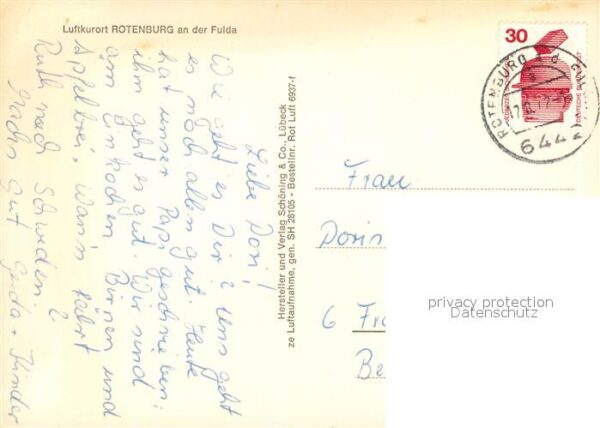 Luftkurort ROTENBURG an der Fulda
Liebe Dori!
Wie geht es Dir? Uns geht
es noch allen gut. Heute
hat unser Papi geschrieben:
ihm geht es gut. Wir sind
am Einkochen. Birnen und
Apfelbrei. Wann fährt
Ruth nach Schweden?
Machs gut Gerda + Kinder
Hersteller und Verlag Schöning & Co., Lübeck
ze Luftaufnahme, gen. SH 26105 - Bestellnr. Rot Luft 6937-f
30
DEUTSCHE BUNDESPOST
ROTENBURG a d
6442
Frau
Doris
6 Fra
Be
privacy protection
Datenschutz